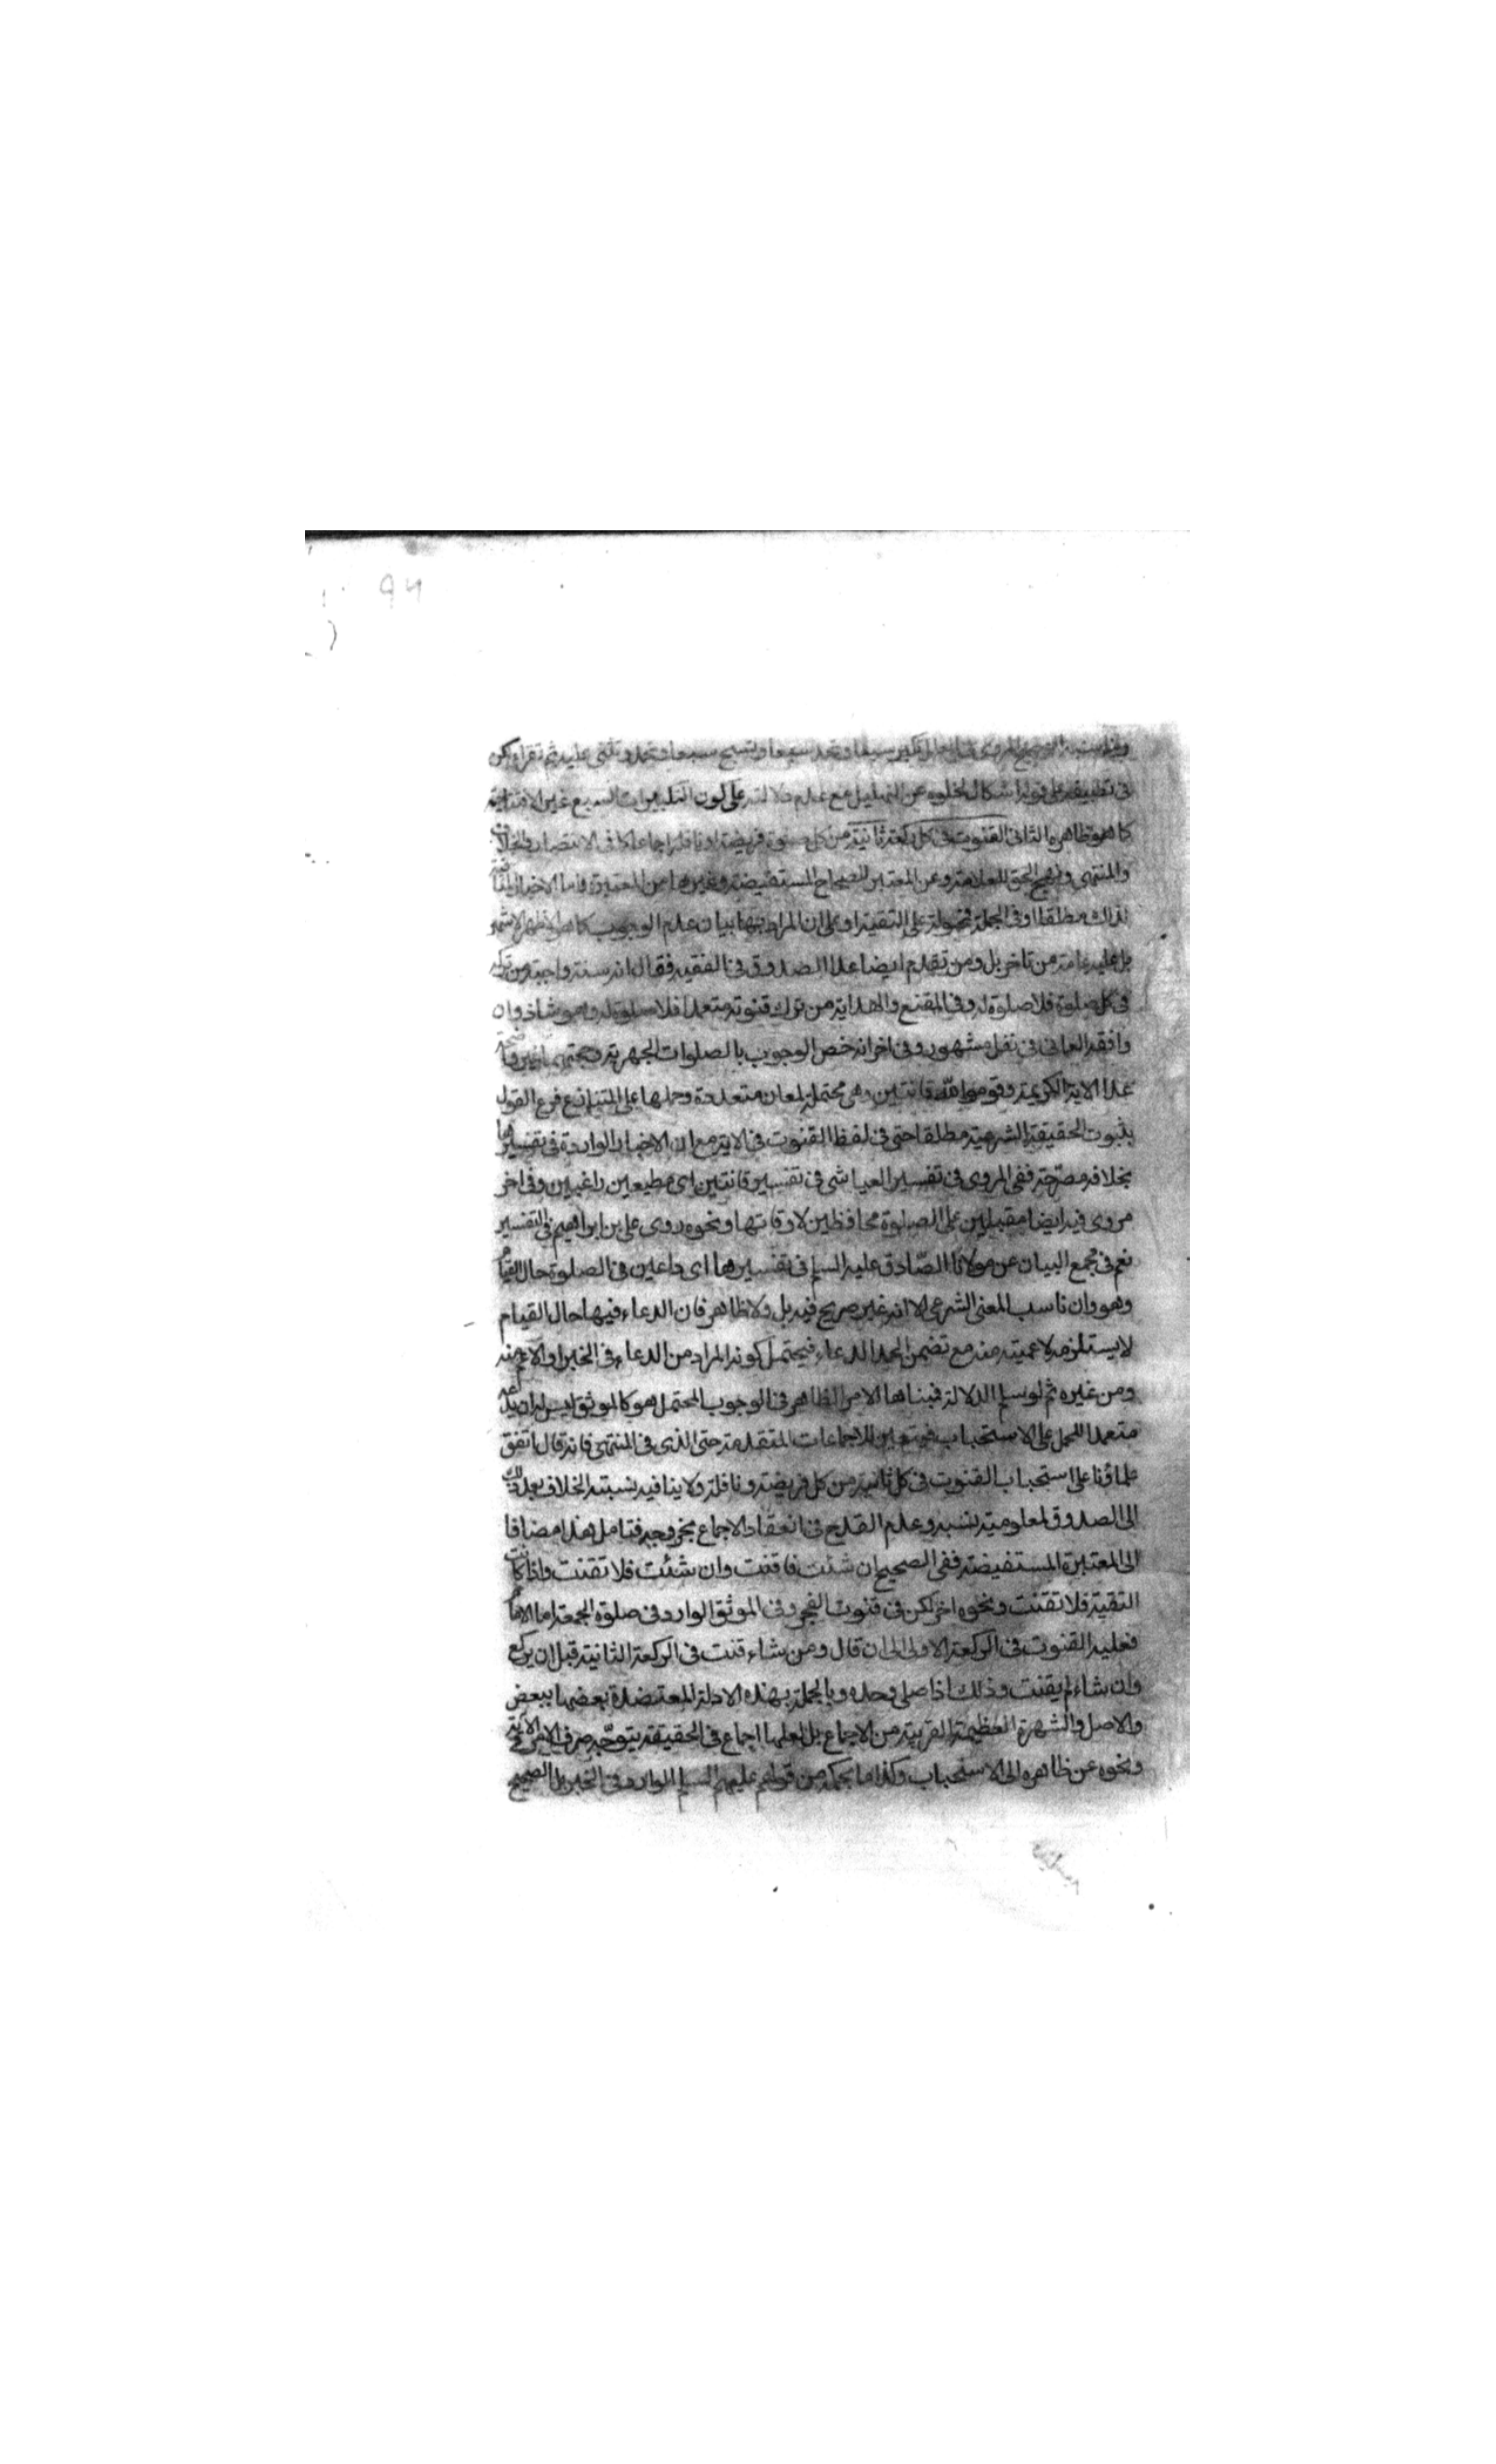 تكبر سبعا وتحمد سبعا وتسبح سبعا وتحمد وتثنى عليه ثم تقرا ولكن
فى تطبيقه على قوله اشكال لخلوه عن التهليل مع عدم دلالته على كون التكبيرات السبع غير الافتتاحية
كما هو ظاهره الثانى القنوت فى كل ركعة ثانية من كل صلوة فريضة او نافلة اجماعا كما فى الانتصار والخلاف
والمنتهى ونهج الحق للعلامة وعن المعتبر للصحاح المستفيضة وغيرها من المعتبرة واما الاخبار
لذلك مطلقا او فى الجملة فمحمولة على التقية او على ان المراد بها بيان عدم الوجوب كما هو الاظهر الاشهر
بل عليه عامة من تاخر بل ومن تقدم ايضا عدا الصدوق فى الفقيه فقال انه سنة واجبة من تركه
فى كل صلوة فلا صلوة له وفى المقنع والهداية من ترك قنوته متعمدا فلا صلوة له وهو شاذ وان
وافقه العمانى فى نقل مشهور وفى اخر انه خص الوجوب بالصلوات الجهرية
عدا الاية الكريمة وقوموا لله قانتين وهى محتملة لمعان متعددة وحملها على المتنازع فرع القول
بثبوت الحقيقة الشرعية مطلقا حتى فى لفظ القنوت فى الاية مع ان الاخبار الواردة فى تفسيرها
بخلافه مصرحة ففى المروى فى تفسير العياشى فى تفسير قانتين اى مطيعين راغبين وفى اخر
مروى فيه ايضا مقبلين على الصلوة محافظين لاوقاتها ونحوه روى على بن ابراهيم فى التفسير
نعم فى مجمع البيان عن مولانا الصادق عليه السلم فى تفسيرها اى داعين فى الصلوة حال القيام
وهو وان ناسب المعنى الشرعى الا انه غير صريح فيه بل ولا ظاهر فان الدعاء فيها حال القيام
لا يستلزمه لاعميته منه مع تضمن الحمد الدعاء فيحتمل كونه المراد من الدعاء فى الخبر او الاعم منه
ومن غيره ثم لو سلم الدلالة فبناها الامر الظاهر فى الوجوب المحتمل هو كالموثق ليس له ان يدعه
متعمدا للحمل على الاستحباب فيتعين للاجماعات المتقدمة حتى الذى فى المنتهى فانه قال اتفق
علماؤنا على استحباب القنوت فى كل ثانية من كل فريضة ونافلة ولا ينافيه نسبته الخلاف بعد ذلك
الى الصدوق لمعلومية نسبه وعدم القدح فى انعقاد الاجماع بخروجه فتامل هذا مضافا
الى المعتبرة المستفيضة ففى الصحيح ان شئت فاقنت وان شئت فلا تقنت واذا كانت
التقية فلا تقنت ونحوه اخر لكن فى قنوت الفجر وفى الموثق الوارد فى صلوة الجمعة اما الامام
فعليه القنوت فى الركعة الاولى الى ان قال ومن شاء قنت فى الركعة الثانية قبل ان يركع
وان شاء لم يقنت وذلك اذا صلى وحده وبالجملة بهذه الادلة المعتضدة بعضها ببعض
والاصل والشهرة العظيمة القريبة من الاجماع بل لعلها اجماع فى الحقيقة يتوجه صرف الامر فى الاية
ونحوه عن ظاهره الى الاستحباب وكذا ما بحكمه من قولهم عليهم السلم الوارد فى الخبر بل الصحيح